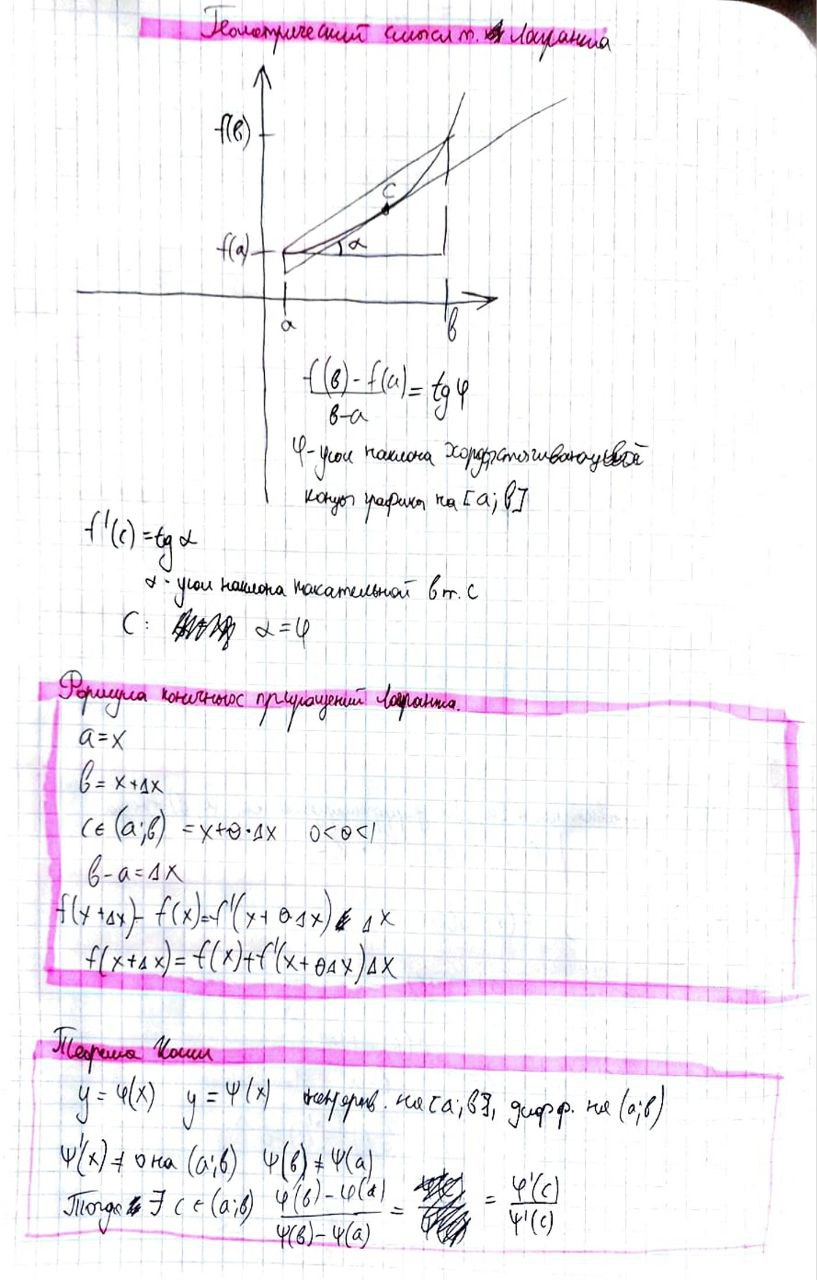 Геометрический смысл т. Лагранжа
f(в)
C
f(a)
α
a
в
f(в) - f(a) / в-a = tg φ
φ - угол наклона хорды стягивающей
концы графика на [a; в]
f'(c) = tg α
α - угол наклона касательной в т. С
C: α = φ
Формула конечных приращений Лагранжа.
a = x
в = x + Δx
c ∈ (a; в) = x + θ·Δx 0 < θ < 1
в - a = Δx
f(x + Δx) - f(x) = f'(x + θΔx) Δx
f(x + Δx) = f(x) + f'(x + θΔx) Δx
Теорема Коши
y = φ(x) y = ψ(x) непрерыв. на [a; в], дифф. на (a; в)
ψ'(x) ≠ 0 на (a; в) ψ(в) ≠ ψ(a)
Тогда ∃ c ∈ (a; в) φ(в) - φ(a) / ψ(в) - ψ(a) = = φ'(c) / ψ'(c)